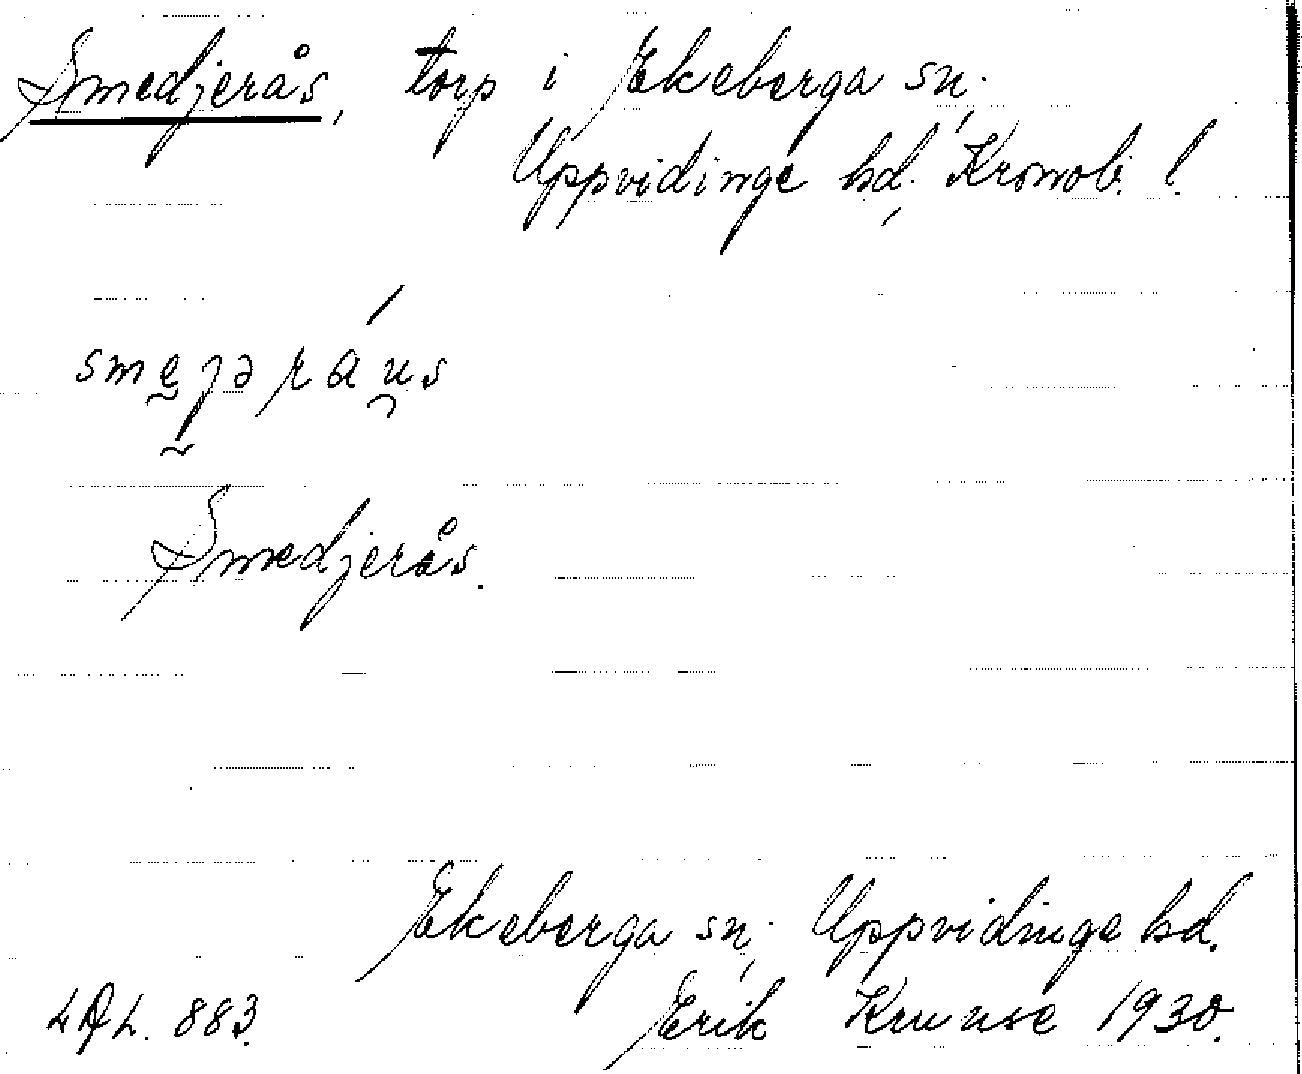 Smedjerås, torp i Ekeberga sn.,
Uppvidinge hd., Kronob. l.
smejəráu̯s
Smedjerås.
Ekeberga sn., Uppvidinge hd.
Erik Kruuse 1930.
883.